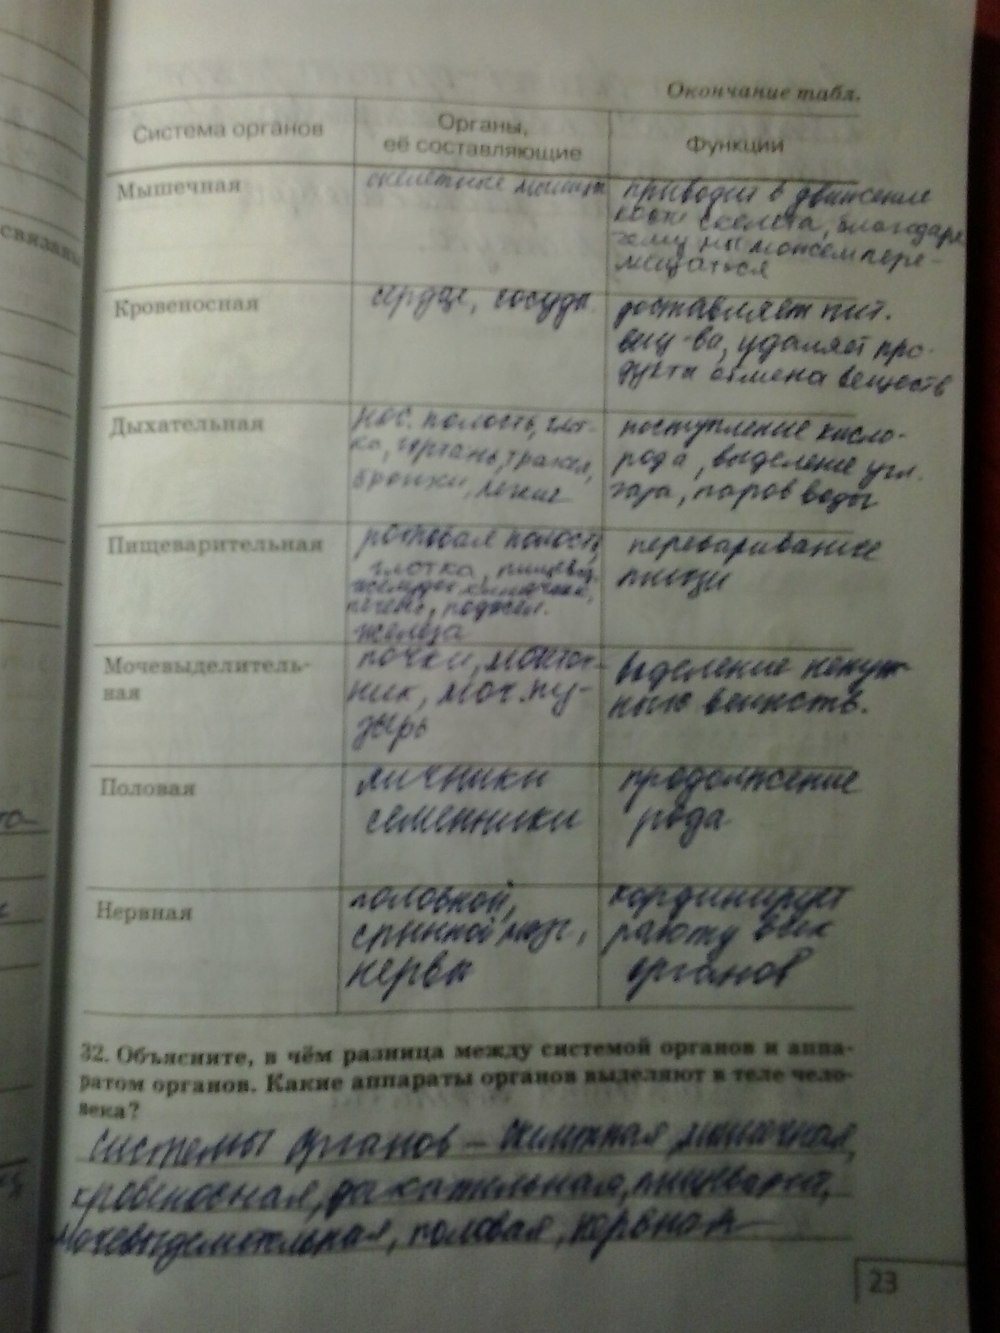 Окончание табл.
Система органов
Органы,
её составляющие
Функции
Мышечная
скелетные мышцы
приводит в движение
кости скелета, благодаря
чему мы можем пере-
мещаться
Кровеносная
сердце, сосуды.
доставляет пит.
вещ-ва, удаляет про-
дукты обмена веществ
Дыхательная
нос. полость, глот-
ка, гортань, трахея,
бронхи, легкие
поступление кисло-
рода, выделение угл.
газа, паров воды
Пищеварительная
ротовая полость,
глотка, пищевод,
желудок, кишечник,
печень, поджел.
железа
переваривание
пищи
Мочевыделитель-
ная
почки, мочеточ-
ник, моч. пу-
зырь
выделение ненуж-
ных веществ.
Половая
яичники
семенники
продолжение
рода
Нервная
головной,
спинной мозг,
нервы
кординирует
работу всех
органов
32. Объясните, в чём разница между системой органов и аппа-
ратом органов. Какие аппараты органов выделяют в теле чело-
века?
системы органов – скелетная мышечная,
кровеносная, дыхательная, пищеварит,
мочевыделительная, половая, нервная
23
связаны